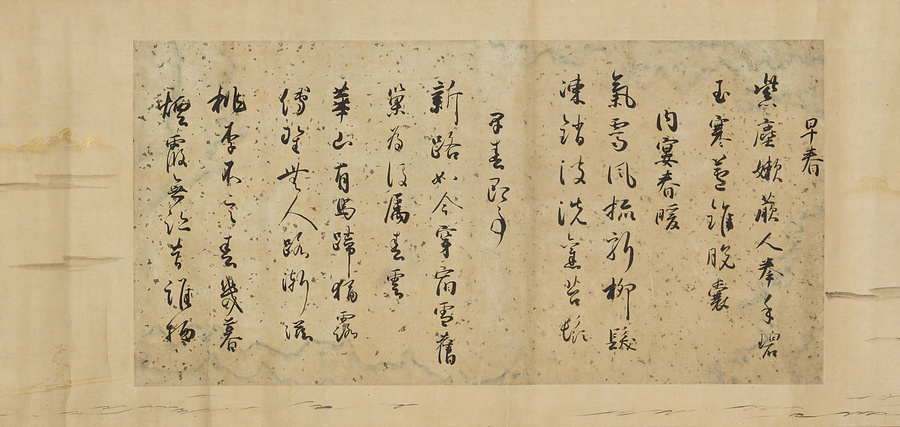 早春
紫塵嫩蕨人拳手碧
玉寒蘆錐脱嚢
内宴春暖
氣霽風梳新柳髮
凍銷波洗舊苔鬚
早春即事
新路如今穿宿雪舊
巢為後属春雲
華山有馬蹄猶露
傅野無人路漸滋
桃李不言春幾暮
煙霞無跡昔誰栖